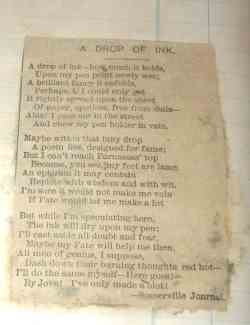 A DROP OF INK.
A drop of ink—how much it holds,
Upon my pen point newly wet;
A brilliant fancy it enfolds,
Perhaps, if I could only get
It rightly spread upon the sheet
Of paper, spotless, free from stain—
Alas! I pass me in the street
And chew my pen holder in vain.
Maybe within that inky drop
A poem lies, designed for fame;
But I can't reach Parnassus' top
Because, you see, my feet are lame.
An epigram it may contain
Replete with wisdom and with wit.
I'm sure it would not make me vain
If Fate would let me make a hit.
But while I'm speculating here,
The ink will dry upon my pen;
I'll cast aside all doubt and fear,
Maybe my Fate will help me then.
All men of genius, I suppose,
Dash down their burning thoughts red hot—
I'll do the same myself—Here goes!—
By Jove! I've only made a blot!
—Somerville Journal.